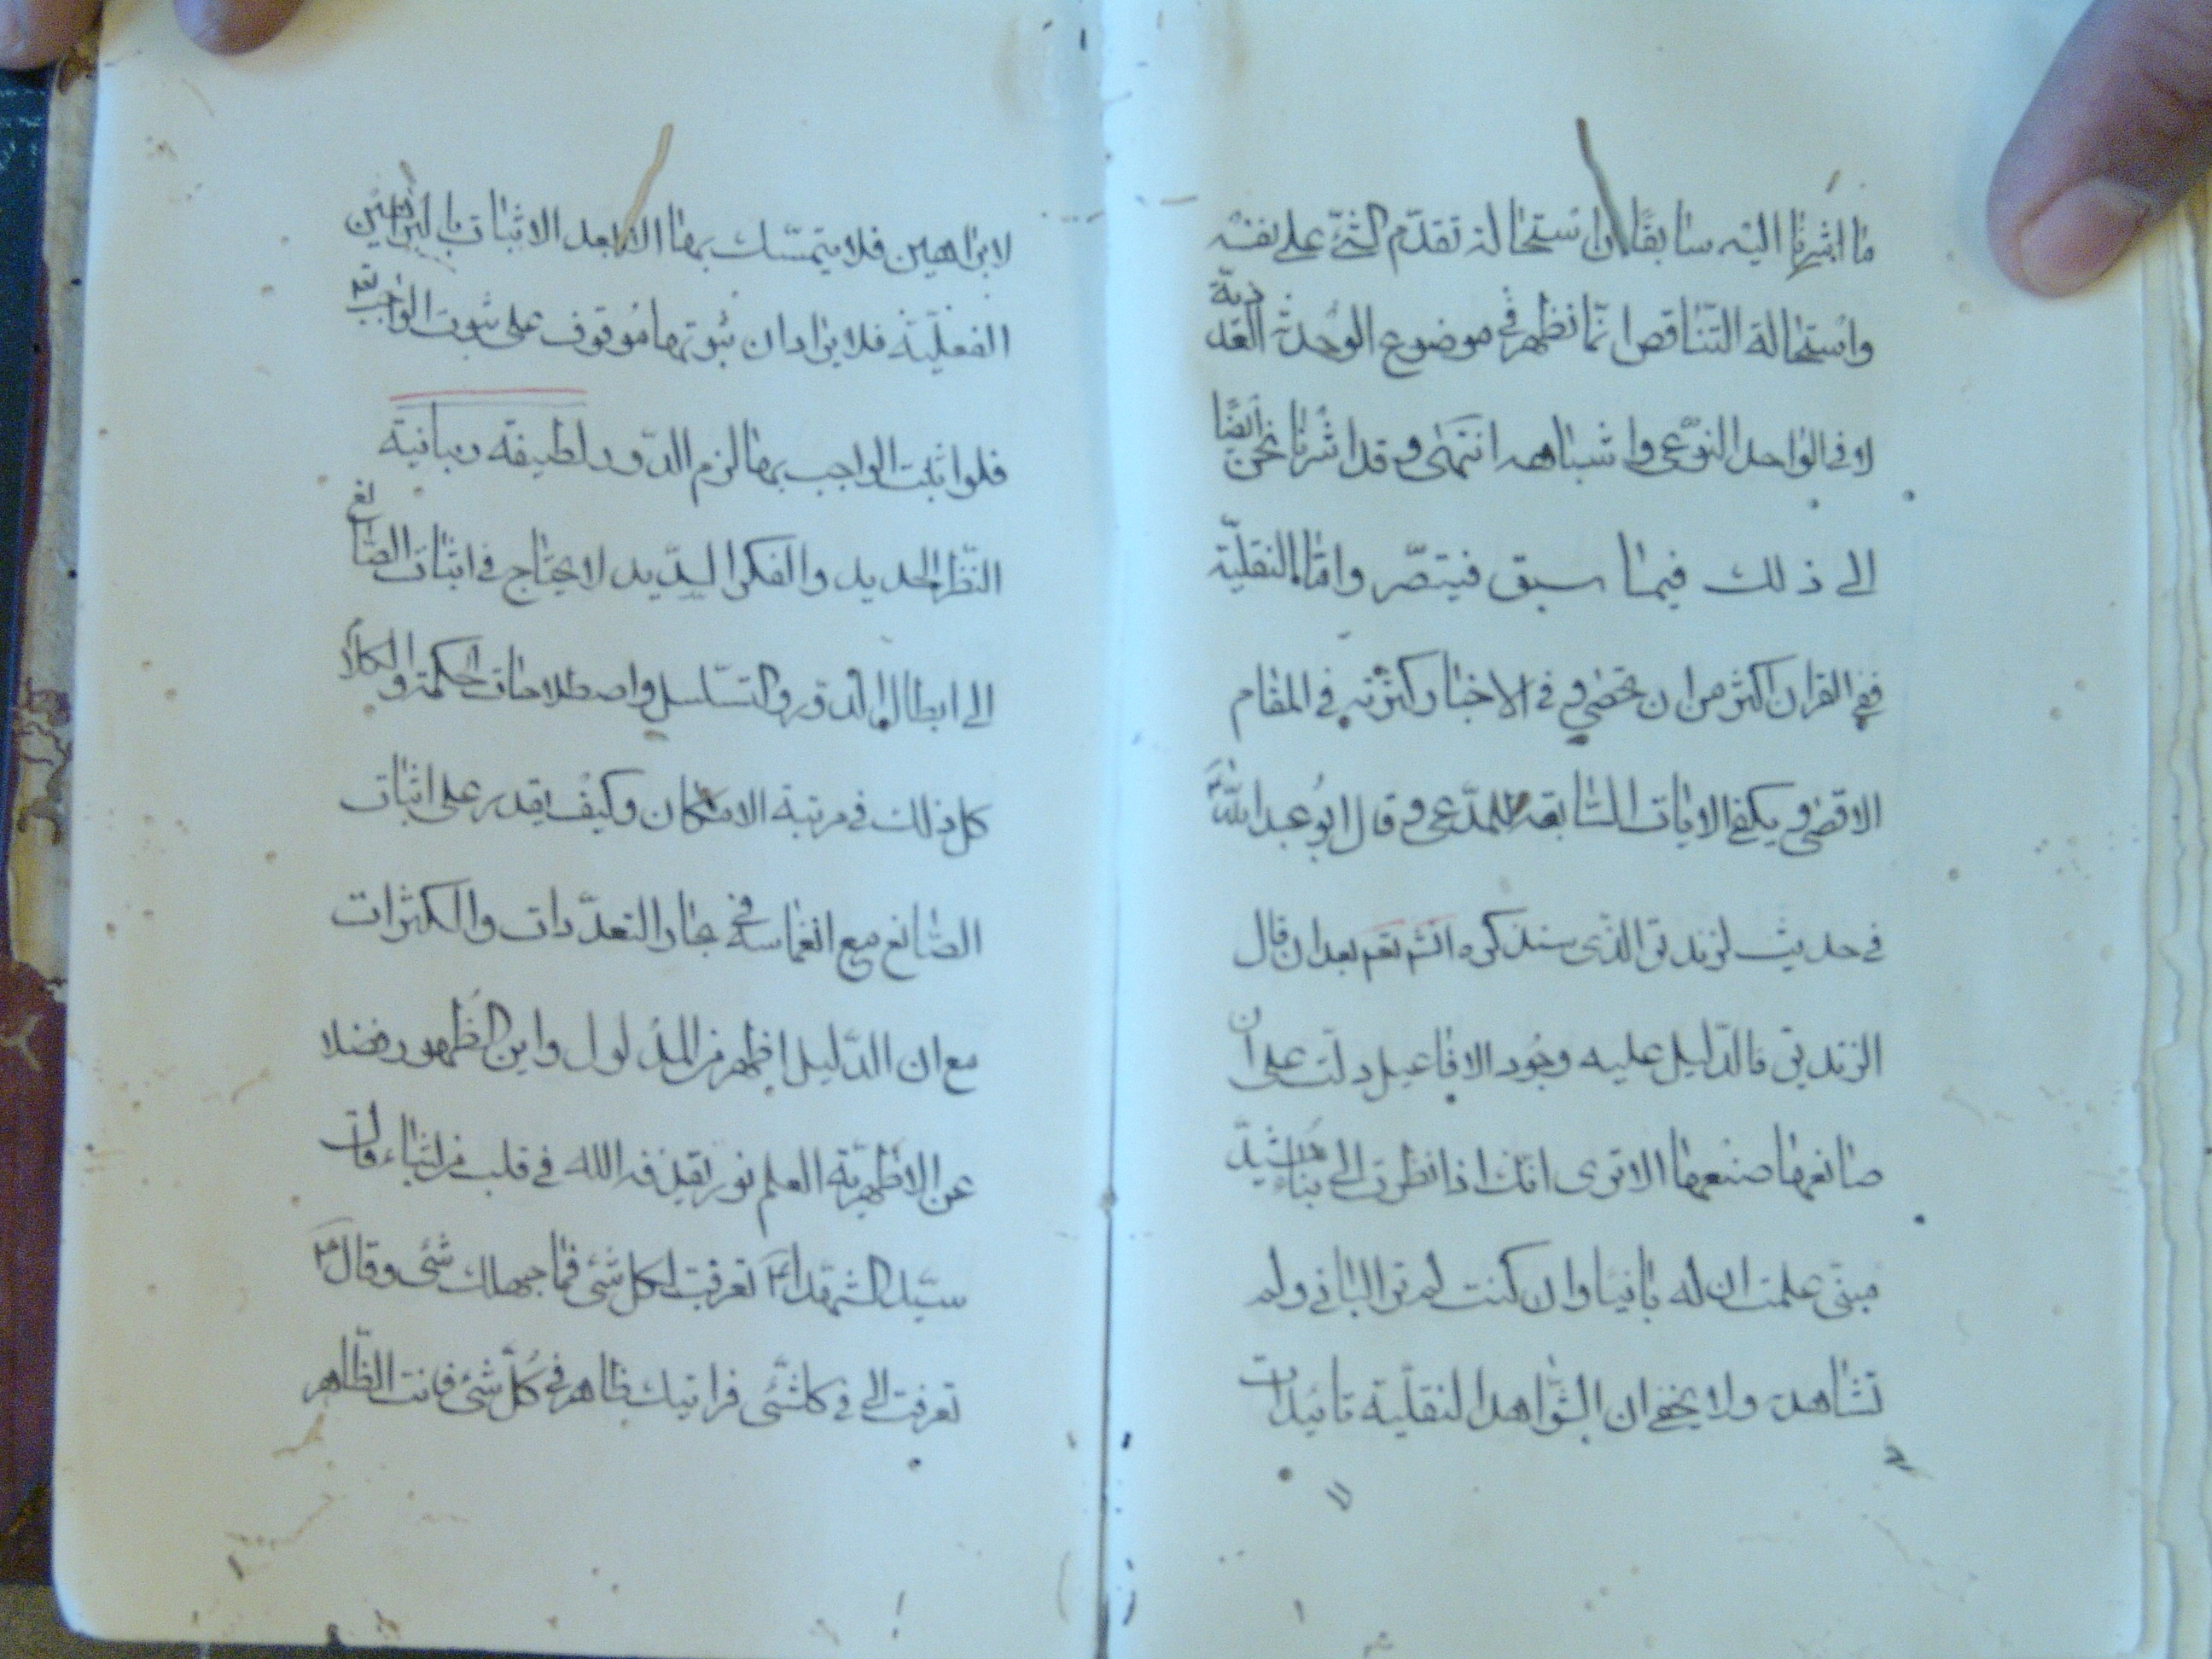 ما اشرنا اليه سابقا ان استحالة تقدّم الشئ على نفسه
واستحالة التّناقض انّما تظهر فى موضوع الوحدة العدديّة
لا فى الواحد النوعى واشباهه انتهى وقد اشرنا نحن ايضًا
الى ذلك فيما سبق فيتصّر وامّا النقليّة
ففى القران اكثر من ان تحصى وفى الاخبار كثرته فى المقام
الاقصى ويكفى الايات السّابقه للمدّعى وقال ابو عبد اللّه
فى حديث لزنديق الذّى سنذكره انشم نقم بعد ان قال
الزنديق فما الدّليل عليه وجود الافاعيل دلّت على ان
صانعها صنعها الا ترى انّك اذا نظرت الى بناء مشيّد
مبنّى علمت ان له بانيا وان كنت لم تر البانى ولم
تشاهده ولا يخفى ان الشّواهد النقليّة تائيدات
لابراهين فلا يتمسّك بها الا بعد الاثبات بالبراهين
الفعليّة فلا يراد ان ثبوتها موقوف على ثبوت الواجب تعه
فلو اثبت الواجب بها لزم الدّور لطيفة ربانية
النّظر الحديد والفكر السّديد لا يحتاج فى اثبات الصّانع
الى ابطال الدّور والتسّلسل واصطلاحات الحكمة والكلا
كل ذلك فى مرتبة الامكان وكيف يقدر على اثبات
الصّانع مع انغماسه فى بحار التعدّدات والكثرات
مع ان الدّليل اظهر من المدلول واين الظّهور فضلا
عن الاظهريّة العلم نور يقذفه الله فى قلب من يشاء وقال
سيّد الشّهداء تعرفت لكل شئ فما جهلك شئ وقال
تعرفت الى فى كلشّى فرايتك ظاهر فى كلّ شئ فانت الظّاهر